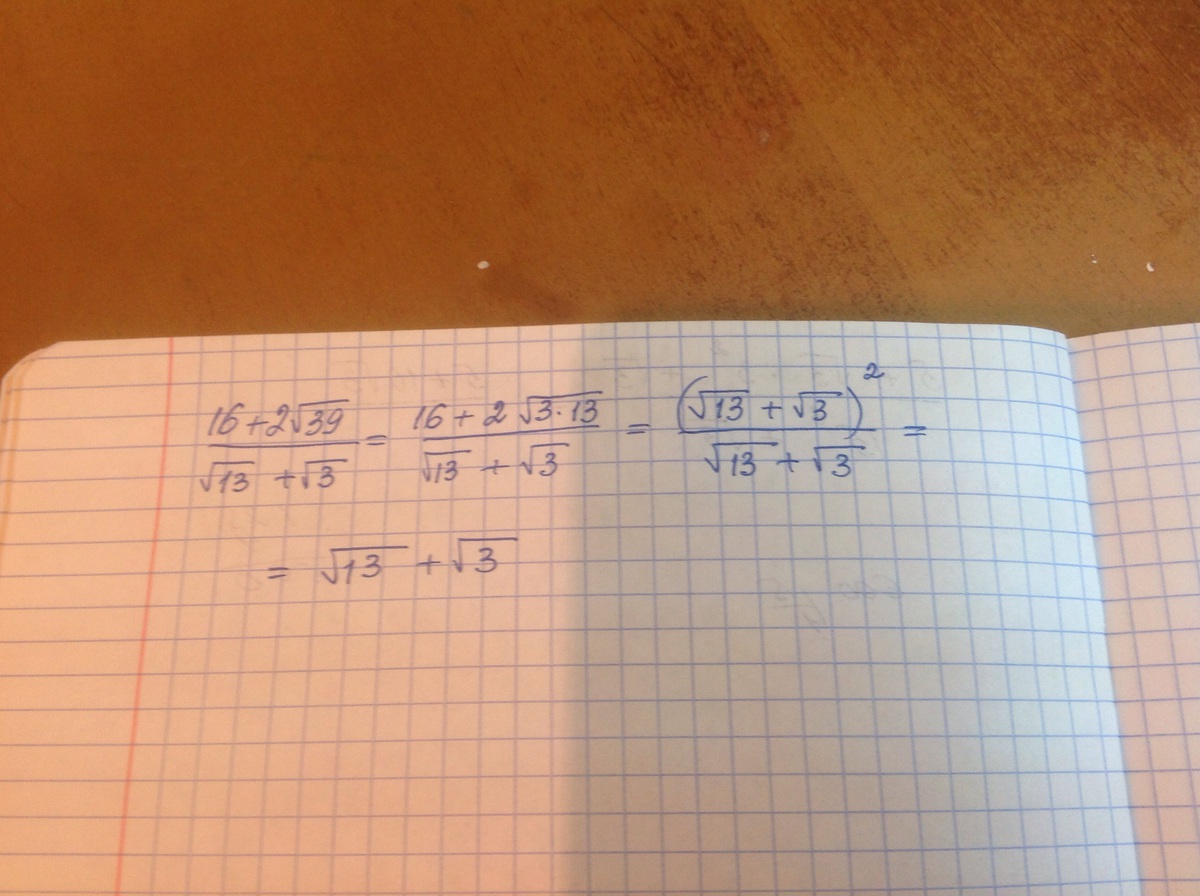 (16 + 2√39)/(√13 + √3) = (16 + 2√(3·13))/(√13 + √3) = (√13 + √3)²/(√13 + √3) =
= √13 + √3